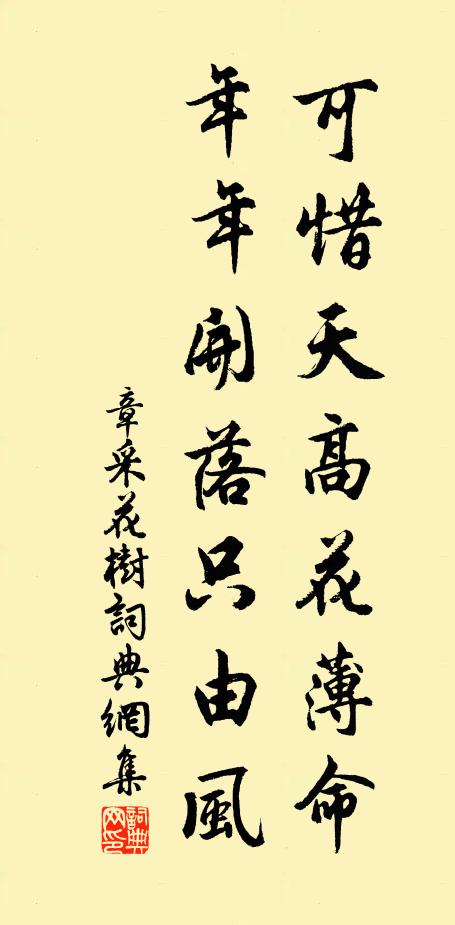 可惜天高花薄命
年年開落只由風
章采花樹詞典網集
詞典
网印